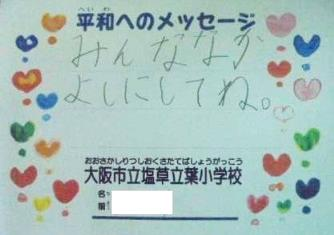 へいわ
平和へのメッセージ
みんななか
よしにしてね。
おおさかしりつしおくさたてばしょうがっこう
大阪市立塩草立葉小学校
名前